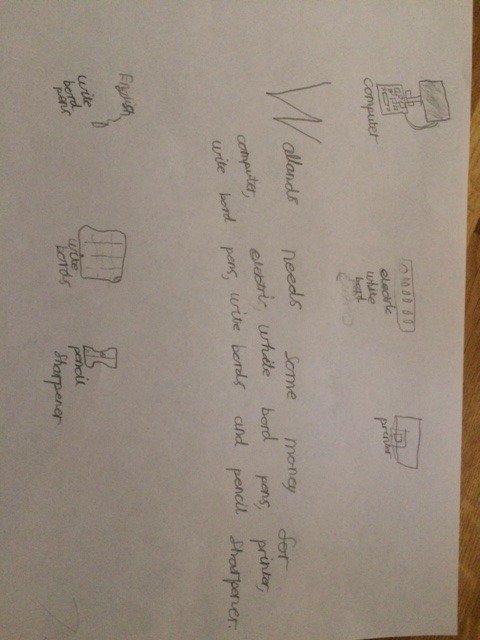 computer
electric
white
bord
printer
Wallands needs some money for
computer, electric, white bord pens, printer,
wite bord pens, wite bords and pencil sharpener.
wite
bord
pens
wite
bords
pencil
sharpener